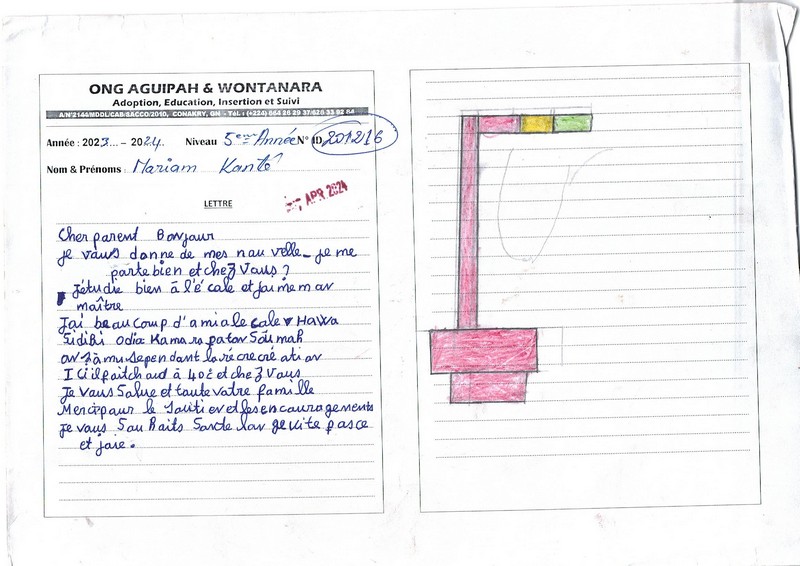 ONG AGUIPAH & WONTANARA
Adoption, Education, Insertion et Suivi
Année : 2023... – 2024. Niveau 5eme Année N° ID 201216
Nom & Prénoms : Mariam Kanté
APR 2024
LETTRE
Cher parent Bonjour
je vous donne de mes nau velle – je me
parte bien et chez Vous ?
J'étudie bien à l'é cale et j'ai me m av
maître
J'ai beau coup d'a mi a le cale HaWa
Sidibi odia Kamara patav Soumah
av s'a mu se pen dant la ré cré ati av
I Ci il fait chaud à 40c et chez Vous
Je Vous Salue et toute votre fa mille
Merci pour le Souti ev et les en cou ra ge ments
Je vous Sou haits Sante lav ge vite pasce
et jaie .